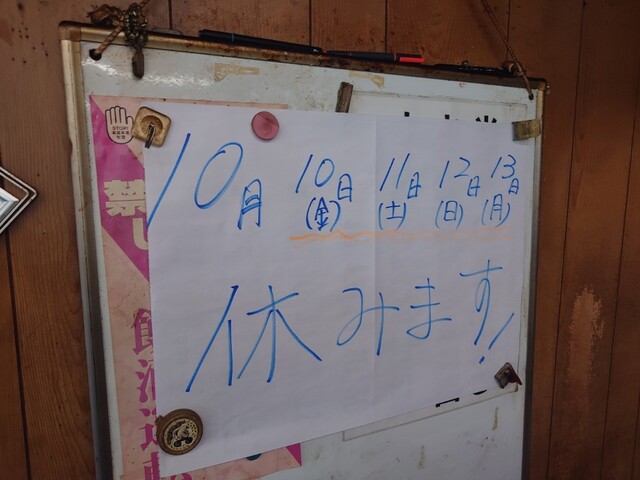 10月 10日 11日 12日 13日
(金) (土) (日) (月)
休みます!
STOP!
禁
飲酒運転